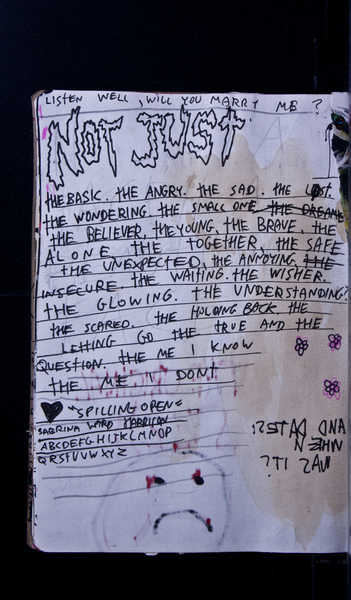 LISTEN WELL, WILL YOU MARRY ME?
NOT JUST
THE BASIC. THE ANGRY. THE SAD. THE LOST.
THE WONDERING. THE SMALL ONE. THE DREAMS
THE BELIEVER, THE YOUNG, THE BRAVE, THE
ALONE THE TOGETHER, THE SAFE
THE UNEXPECTED, THE ANNOYING, THE
INSECURE. THE WAITING. THE WISHER.
THE GLOWING. THE UNDERSTANDING?
THE SCARED. THE HOLDING BACK. THE
LETTING GO THE TRUE AND THE
QUESTION. THE ME I KNOW
THE ME I DON'T
"SPILLING OPEN"
SABRINA WARD HARRISON
ABCDEFGHIJKLMNOP
QRSTUVWXYZ
AND DATES?!
WHEN
WAS IT?